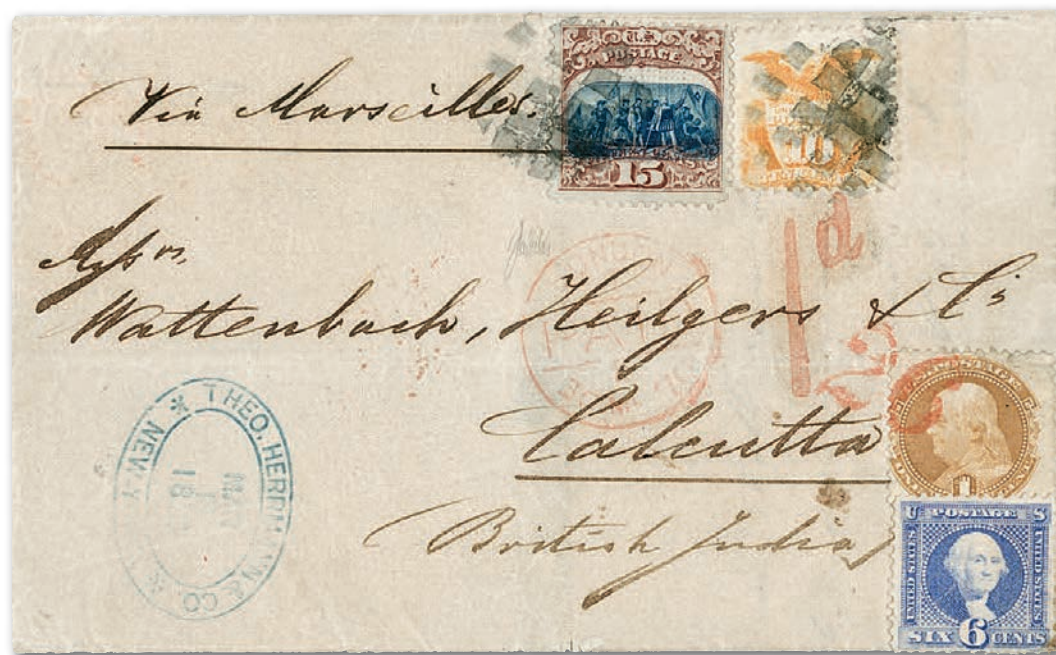 Via Marseilles.
U.S.
POSTAGE
15
10
1 d
Wattenbach, Heilgers & Co
Calcutta
British India
THEO. HERRMANN & CO.
NEW Y
18
1
U POSTAGE S
UNITED STATES
UNITED STATES
SIX 6 CENTS